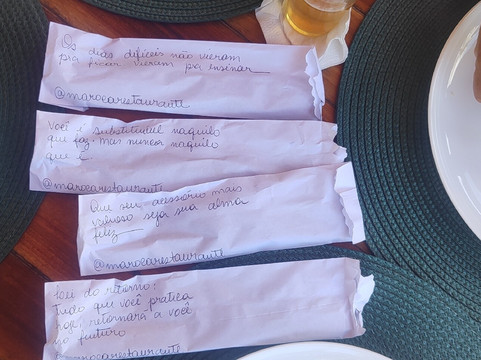 Os dias difíceis não vieram
pra ficar vieram pra ensinar
@marocarestaurante
Você é substituível naquilo
que faz. Mas nunca naquilo
que é
@marocarestaurante
Que seu acessório mais
valioso seja sua alma
feliz
@marocarestaurante
Lei do retorno:
tudo que você pratica
hoje, retornará a você
no futuro
@marocarestaurante